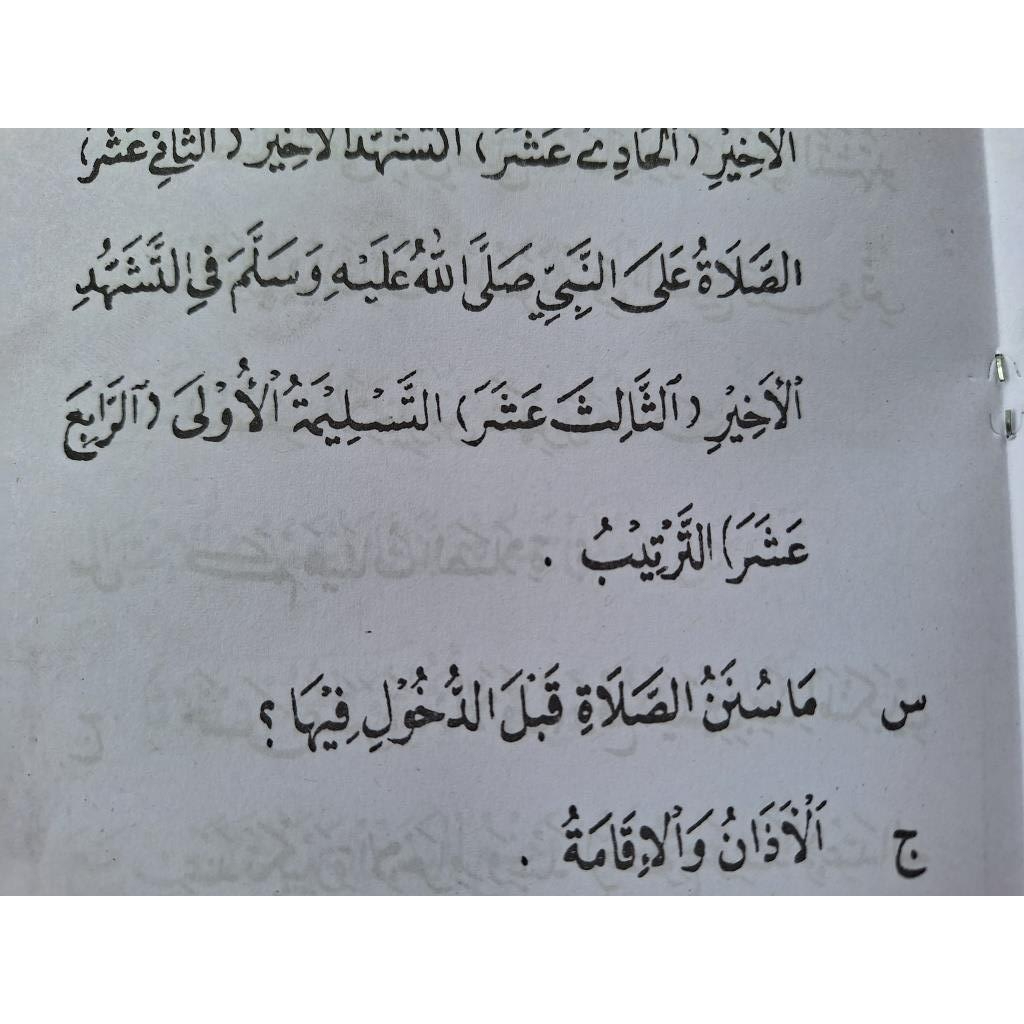 الْأَخِيْرِ (الْحَادِيْ عَشَرَ) التَّشَهُّدُ الْأَخِيْرُ (الثَّانِيْ عَشَرَ)
الصَّلَاةُ عَلَى النَّبِيِّ صَلَّى اللهُ عَلَيْهِ وَسَلَّمَ فِي التَّشَهُّدِ
الْأَخِيْرِ (الثَّالِثَ عَشَرَ) التَّسْلِيْمَةُ الْأُوْلَى (الرَّابِعَ
عَشَرَ) التَّرْتِيْبُ .
س مَا سُنَنُ الصَّلَاةِ قَبْلَ الدُّخُوْلِ فِيْهَا ؟
ج اَلْأَذَانُ وَالْإِقَامَةُ .